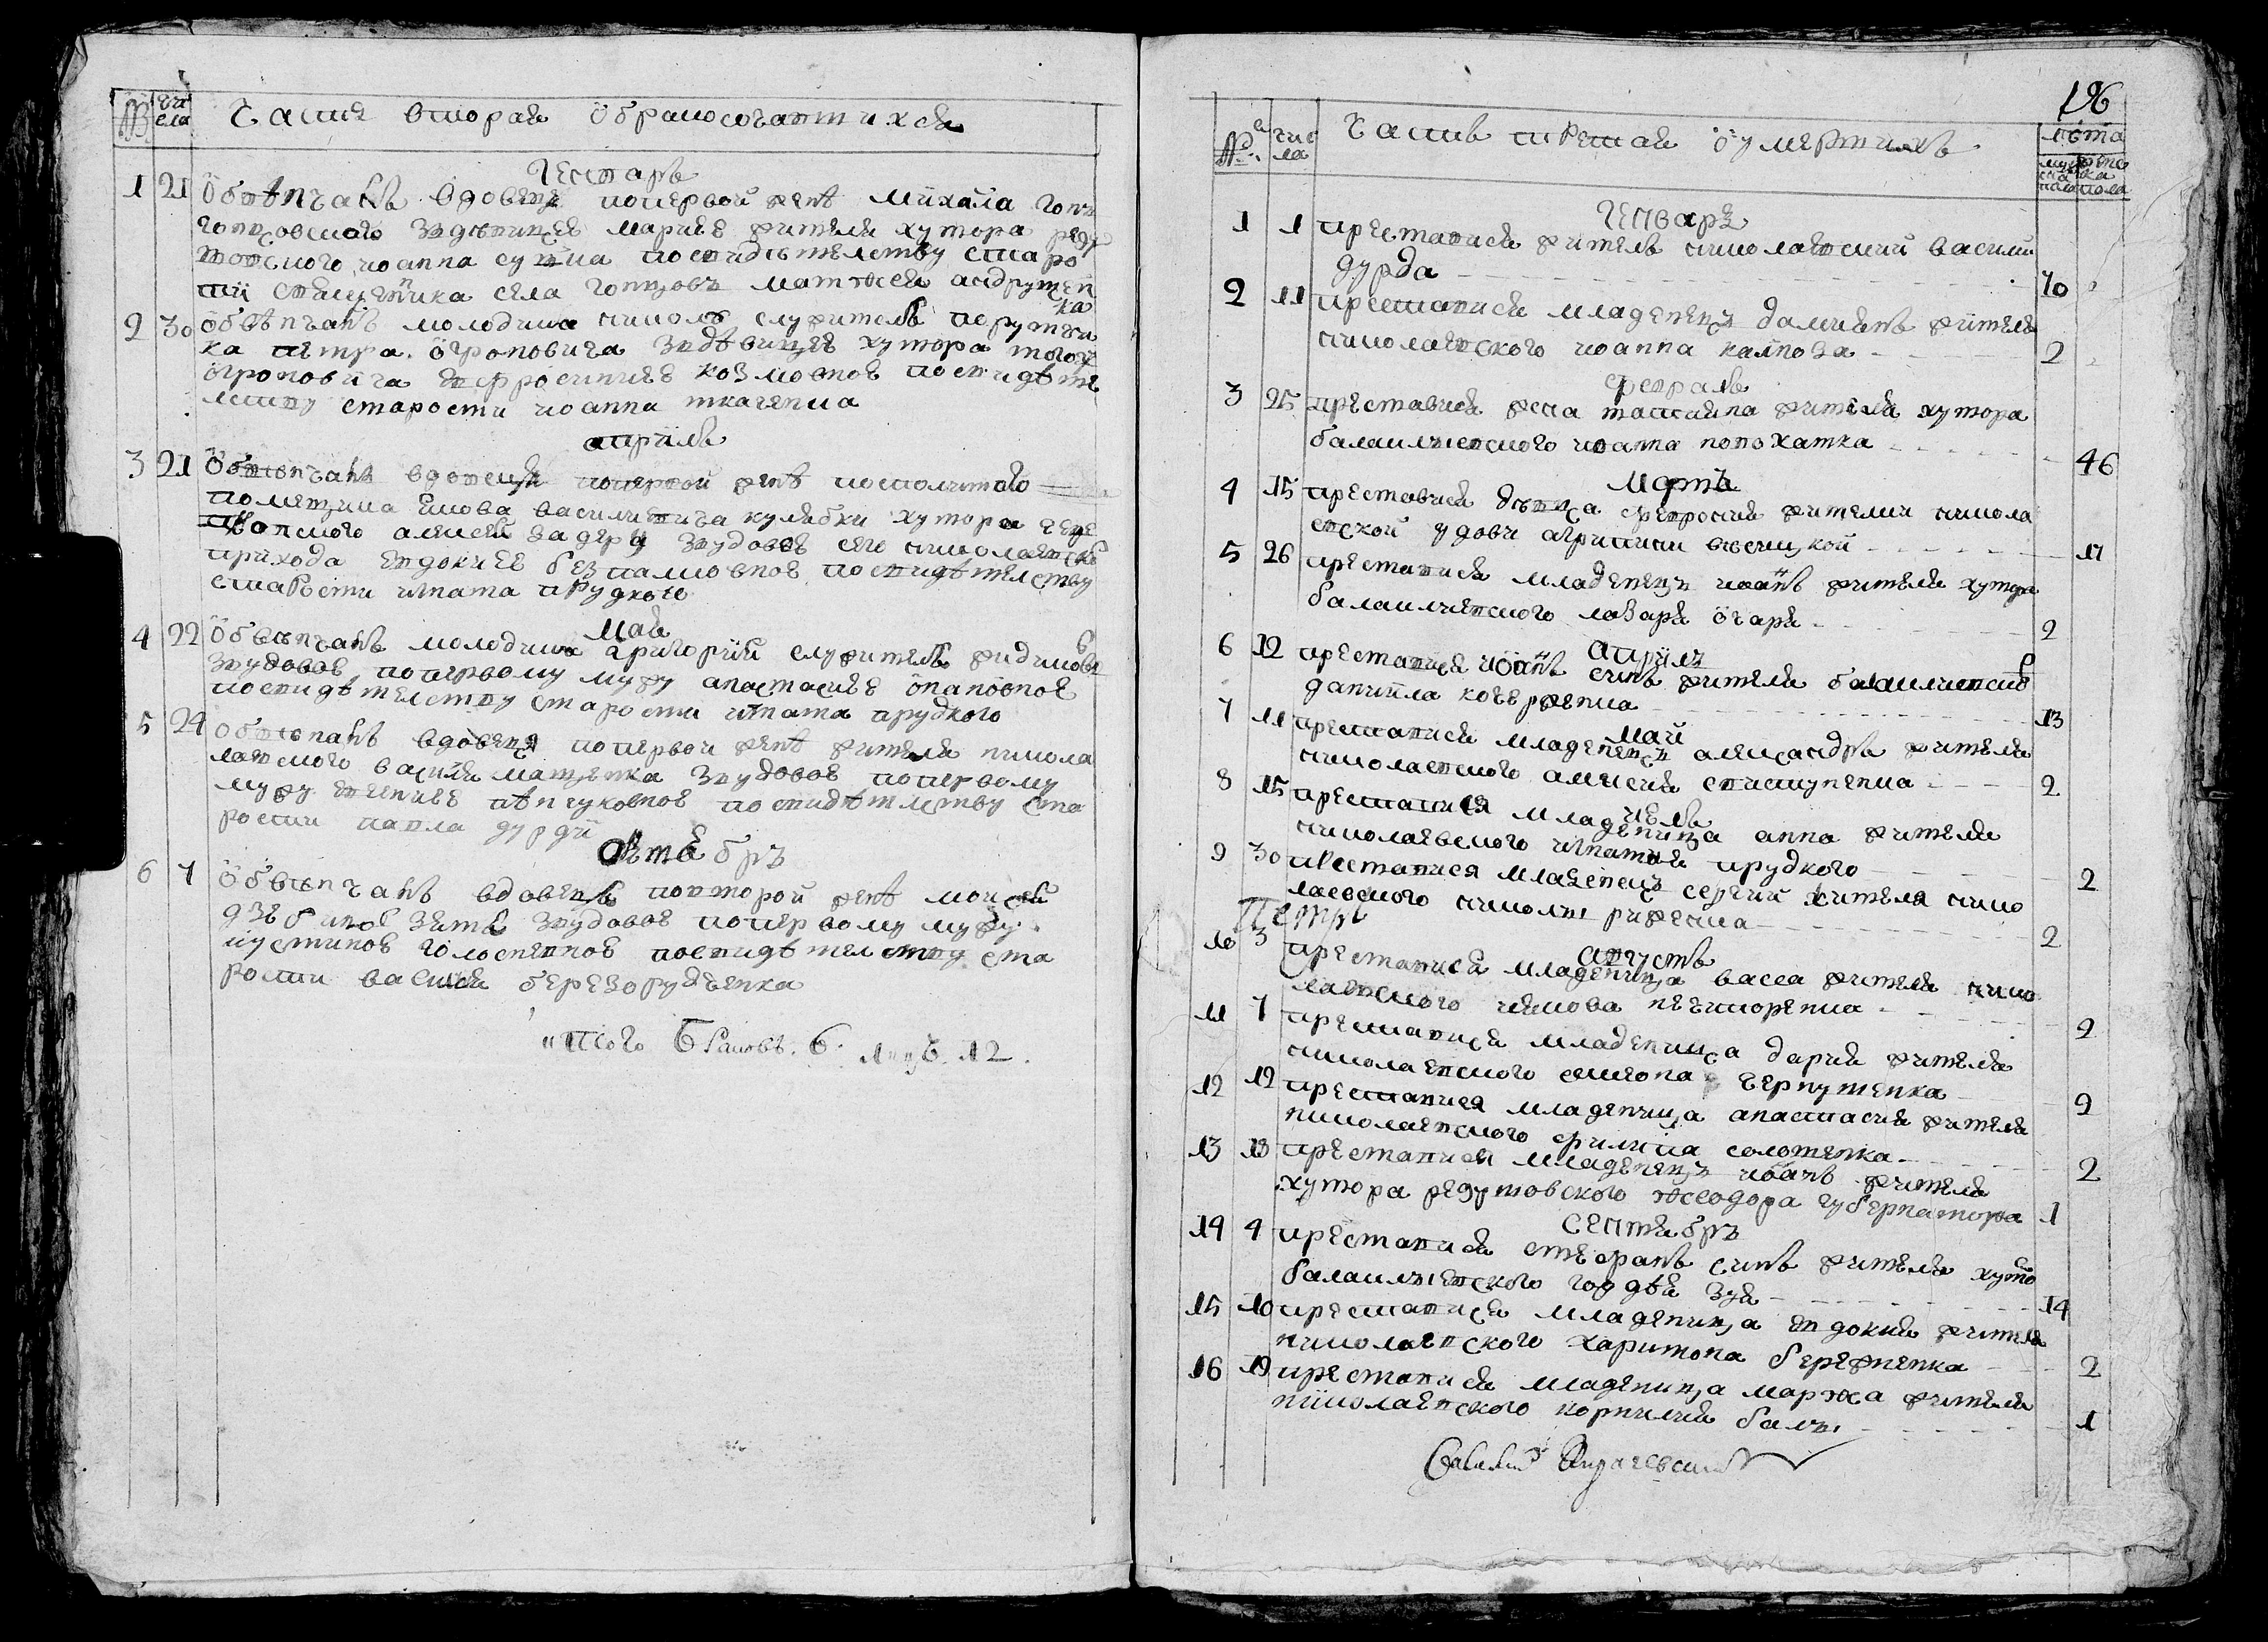 № чи сла Часть вторая о бракосочатшихся
Генварь
1 21 обвѣнчанъ вдовецъ попервой женѣ михаила гон
говского здѣвицею мариею жителя хутора реду
товского иоанна сухна посвидѣтелству старо
сти священника села гонцовъ матфея андрущен
ка
2 30 обвѣнчанъ молодикъ служитель
ка петра огроновича здѣвицею хутора того
огроновича евфросиниею козмовною посвидѣте
лству старости иоанна ткаченка
априль
3 21 обвѣнчанъ вдовецъ попервой женѣ посполитого
помѣщика якова василиевича кулябки хутора
алексей задера вдовою сего николаевского
прихода евдокиею безпалковною посвидѣтелству
старости игната прудкого
май
4 22 обвѣнчанъ молодикъ григорий служитель
вдовою попервому мужу анастасиею
посвидѣтелству старости игната прудкого
5 24 обвѣнчанъ вдовецъ попервой женѣ жителя никола
евского василия мащенка вдовою попервому
мужу евгениею посвидѣтелству ста
рости павла дурдй
октябръ
6 7 обвѣнчанъ вдовецъ повторой женѣ мойсей
вдовою попервому мужу
иустиною посвидѣтелству ста
рости василия березорудченка
итого браковъ 6 лицъ 12
196
№ чис ла Часть третая о умершихъ лѣта
мужеска пола женска пола
Генварь
1 1 преставися житель николаевский василий
дурда 70
2 11 преставися младенецъ дамиянъ жителя
николаевского иоанна 2
февраль
3 25 преставися жена татияна жителя хутора
балаклѣевского иоанна 46
мартъ
4 15 преставися дѣвица ефросия жителки никола
евской удови агрипини висицкой 17
5 26 преставися младенецъ иоаннъ жителя хутора
балаклѣевского лазаря очаря 2
априлъ
6 12 преставися иоаннъ синъ жителя балаклѣевского
даниила кочерженка 13
май
7 11 преставися младенецъ александръ жителя
николаевского алексея 2
июль
8 15 преставися младеница анна жителя
николаевского игнатия прудкого 2
9 30 преставися младенецъ сергий жителя нико
лаевского николы риженка 2
Петръ
августъ
10 3 преставися младеница васса жителя нико
лаевского иякова нечипоренка 2
11 7 преставися младеница дария жителя
николаевского симеона чернушенка 2
12 12 преставися младеница анастасия жителя
николаевского филипа солошенка 2
13 13 преставися младенецъ иоаннъ жителя
хутора редутовского феодора губернатора 1
сентябръ
14 4 преставися стефанъ синъ жителя хуто
балаклѣевского гордѣя зуя 14
15 10 преставися младеница евдокия жителя
николаевского харитона бережненка 2
16 19 преставися младеница марфа жителя
николаевского корнилия балы 1